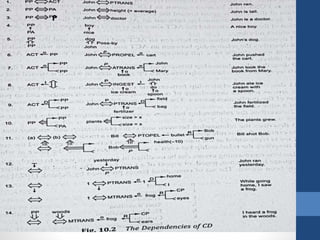 1. PP ⇔ ACT John ⇔ PTRANS John ran.
2. PP ⇔ PA John ⇔ height (> average) John is tall.
3. PP ⇔ PP John ⇔ doctor John is a doctor.
4. PP boy A nice boy
PA nice
5. PP dog John's dog.
PP Poss-by
John
6. ACT ← PP John ⇔ PROPEL ← cart John pushed
the cart.
7. ACT PP John ⇔ ATRANS John John took the
PP Mary book from Mary.
book
8. ACT John ⇔ INGEST John ate ice
ice cream do cream with
spoon a spoon.
9. ACT PP John ⇔ PTRANS field John fertilized
PP bag the field.
fertilizer
10. PP PA plants size = x The plants grew.
PA size = x
11. (a) (b) Bill ⇔ PROPEL ← bullet Bob Bill shot Bob.
gun
Bob health(-10)
12. yesterday John ran
John ⇔ PTRANS yesterday.
13. I ⇔ PTRANS ← I home While going
home, I saw
I ⇔ MTRANS ← frog CP a frog.
eyes
14. PP woods I heard a frog
MTRANS ← frog CP in the woods.
ears
Fig. 10.2 The Dependencies of CD